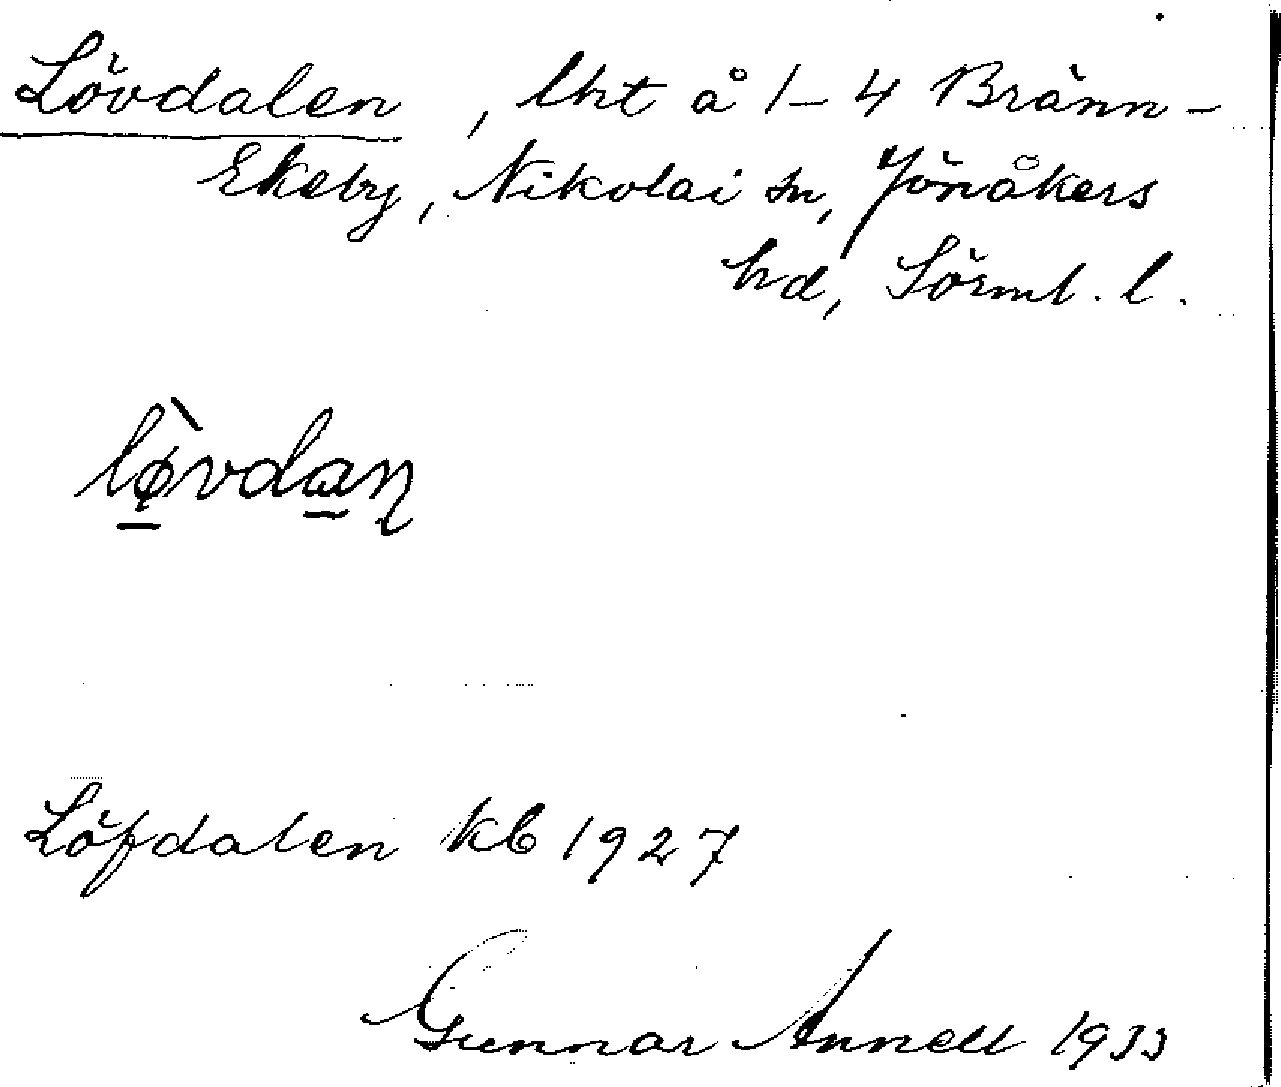 Lövdalen, lht å 1-4 Bränn-
Ekeby, Nikolai sn, Jönåkers
hd, Sörml. l.
lø̀vdaɳ
Löfdalen kb 1927
Gunnar Annell 1933